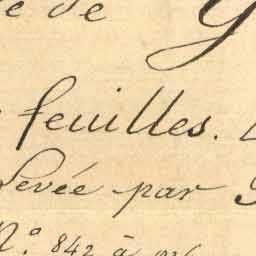 de
feuilles.
Levée par
N.° 842 à